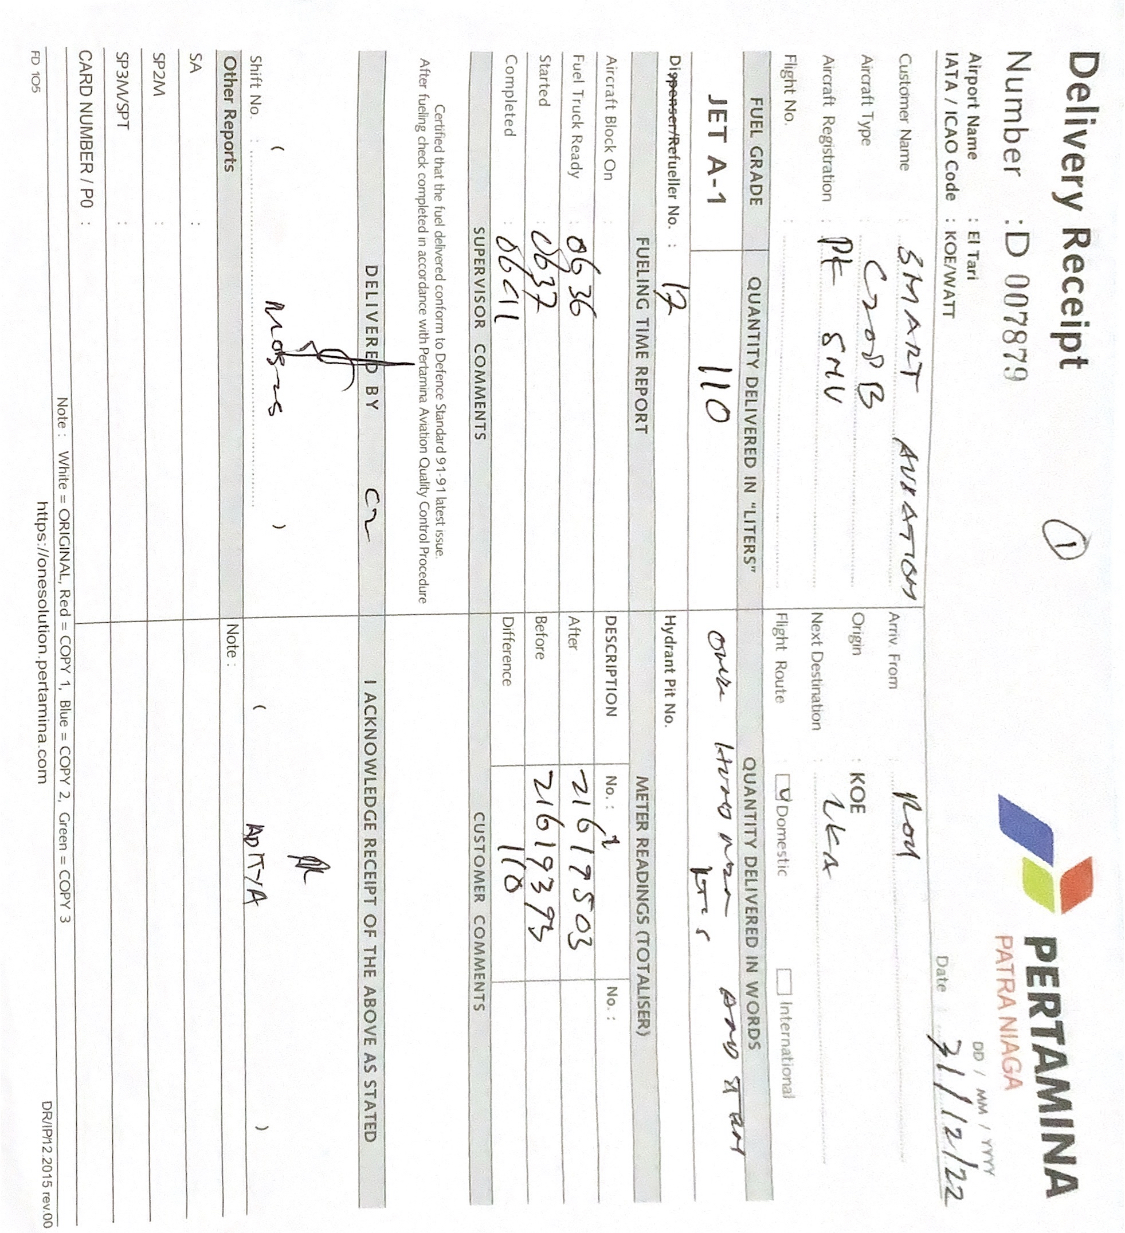 Delivery Receipt
1
PERTAMINA
PATRA NIAGA
Number : D 007879
DD / MM / YYYY
Airport Name : El Tari
Date : 31/12/22
IATA / ICAO Code : KOE/WATT
Customer Name : SMART AVIATION
Arriv From : ROU
Aircraft Type : C208B
Origin : KOE
Aircraft Registration : PK SMV
Next Destination : LKA
Flight No. :
Flight Route : Domestic International
FUEL GRADE QUANTITY DELIVERED IN "LITERS" QUANTITY DELIVERED IN WORDS
JET A-1 110 AND TEN
Dispenser/Refueller No. : 12 Hydrant Pit No.
FUELING TIME REPORT METER READINGS (TOTALISER)
Aircraft Block On :
DESCRIPTION No. : No. :
Fuel Truck Ready : 0636
After 21619503
Started : 0637
Before 21619393
Completed : 0641
Difference 110
SUPERVISOR COMMENTS CUSTOMER COMMENTS
Certified that the fuel delivered conform to Defence Standard 91-91 latest issue.
After fueling check completed in accordance with Pertamina Aviation Quality Control Procedure
DELIVERED BY I ACKNOWLEDGE RECEIPT OF THE ABOVE AS STATED
( ) ( )
Shift No. :
Other Reports Note :
SA :
SP2/M :
SP3/M/SPT :
CARD NUMBER / PO :
Note : White = ORIGINAL, Red = COPY 1, Blue = COPY 2, Green = COPY 3
FD 105 https://onesolution.pertamina.com DR/IP/12.2015 rev.00